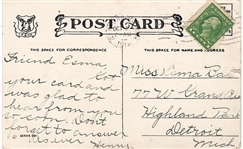 POST CARD
THIS SPACE FOR CORRESPONDENCE
THIS SPACE FOR NAME AND ADDRESS
Friend Esma,
Got
your card and
was glad to
hear from you
so soon. Don't
forget to answer
Henry
Miss Esma
77 W Grand
Highland Park
Detroit
Mich